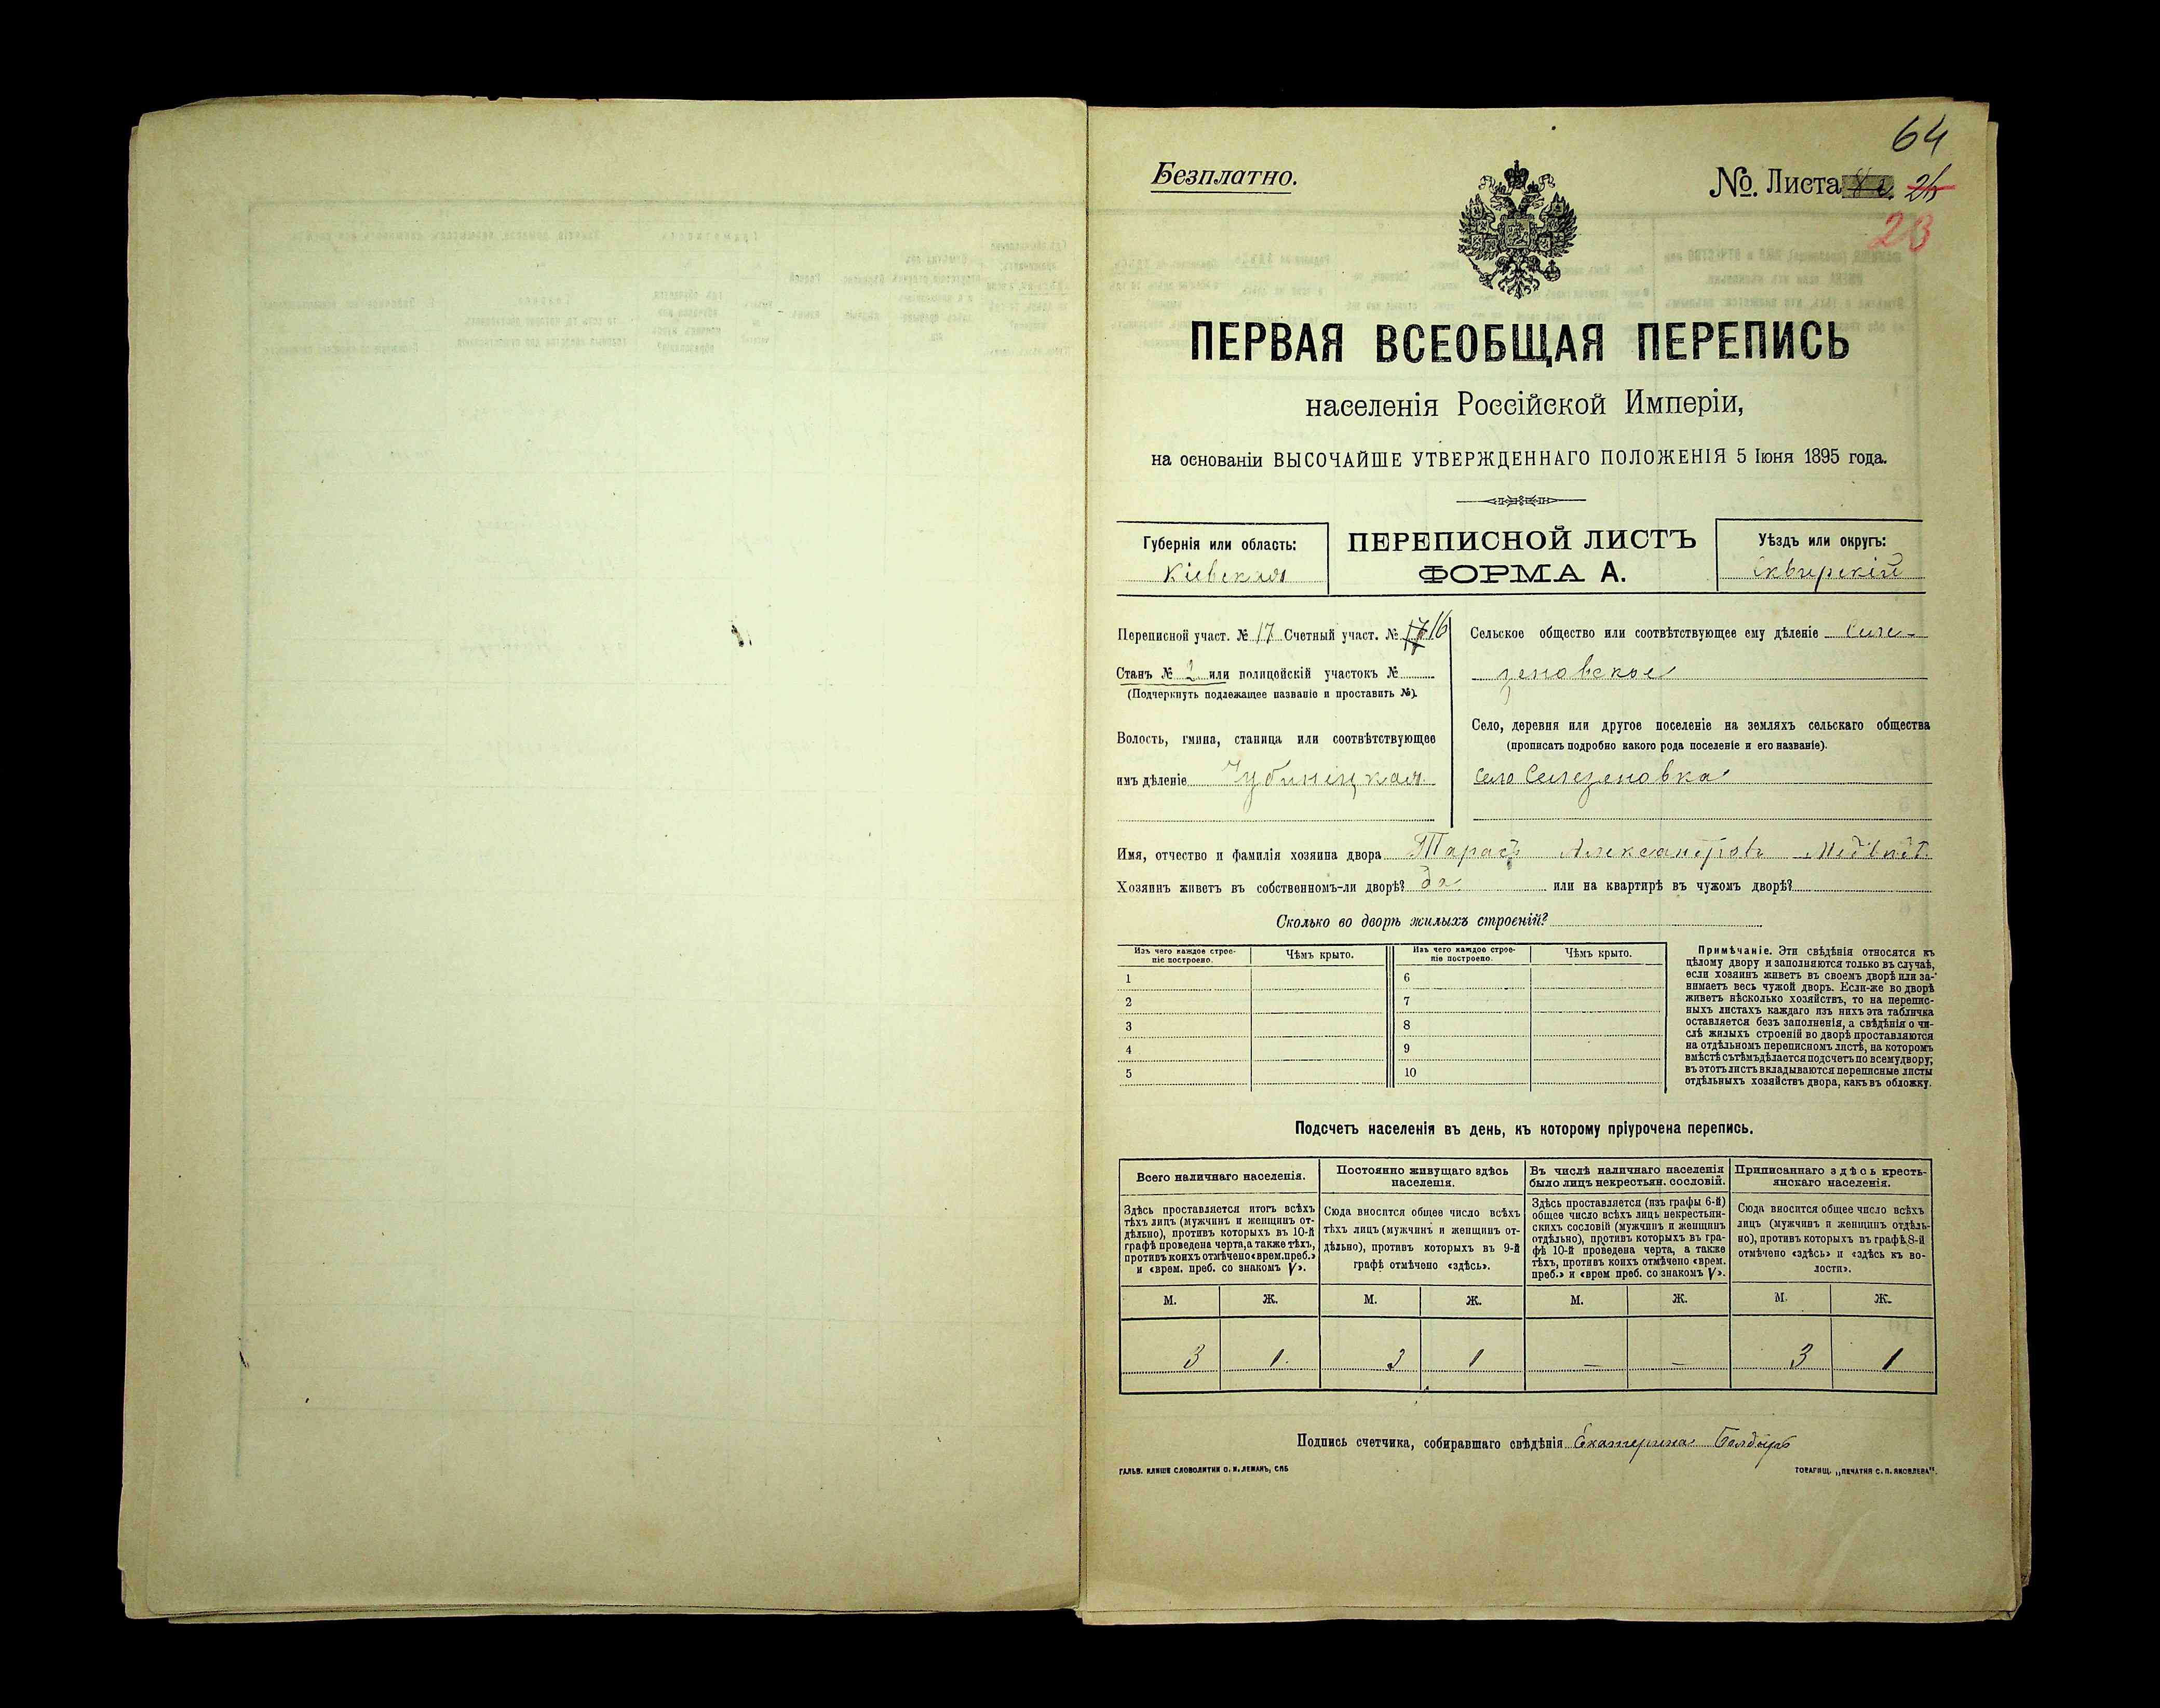 64
Безплатно.
№ Листа 26
23
ПЕРВАЯ ВСЕОБЩАЯ ПЕРЕПИСЬ
населенія Россійской Имперіи,
на основаніи ВЫСОЧАЙШЕ УТВЕРЖДЕННАГО ПОЛОЖЕНІЯ 5 Іюня 1895 года.
Губернія или область:
Кіевская
ПЕРЕПИСНОЙ ЛИСТЪ
ФОРМА А.
Уѣздъ или округъ:
Сквирскій
Переписной участ. № 17 Счетный участ. № 17 16
Станъ № 2 или полицейскій участокъ №
(Подчеркнуть подлежащее названіе и проставить №).
Волость, гмина, станица или соотвѣтствующее
имъ дѣленіе Чубинецкая
Сельское общество или соотвѣтствующее ему дѣленіе Селе-
зеновское
Село, деревня или другое поселеніе на земляхъ сельскаго общества
(прописать подробно какого рода поселеніе и его названіе).
село Селезеновка
Имя, отчество и фамилія хозяина двора Тарасъ Александровъ Медвидь
Хозяинъ живетъ въ собственномъ-ли дворѣ? да или на квартирѣ въ чужомъ дворѣ?
Сколько во дворѣ жилыхъ строеній?
Изъ чего каждое строе-
ніе построено.
Чѣмъ крыто.
Изъ чего каждое строе-
ніе построено.
Чѣмъ крыто.
1 6
2 7
3 8
4 9
5 10
Примѣчаніе. Эти свѣдѣнія относятся къ
цѣлому двору и заполняются только въ случаѣ,
если хозяинъ живетъ въ своемъ дворѣ или за-
нимаетъ весь чужой дворъ. Если-же во дворѣ
живетъ нѣсколько хозяйствъ, то на перепис-
ныхъ листахъ каждаго изъ нихъ эта табличка
оставляется безъ заполненія, а свѣдѣнія о чи-
слѣ жилыхъ строеній во дворѣ проставляются
на отдѣльномъ переписномъ листѣ, на которомъ
вмѣстѣ съ тѣмъ дѣлается подсчетъ по всему двору;
въ этотъ листъ вкладываются переписные листы
отдѣльныхъ хозяйствъ двора, какъ въ обложку.
Подсчетъ населенія въ день, къ которому пріурочена перепись.
Всего наличнаго населенія.
Здѣсь проставляется итогъ всѣхъ
тѣхъ лицъ (мужчинъ и женщинъ от-
дѣльно), противъ которыхъ въ 10-й
графѣ проведена черта, а также тѣхъ,
противъ коихъ отмѣчено «врем. преб.»
и «врем. преб. со знакомъ V».
Постоянно живущаго здѣсь
населенія.
Сюда вносится общее число всѣхъ
тѣхъ лицъ (мужчинъ и женщинъ от-
дѣльно), противъ которыхъ въ 9-й
графѣ отмѣчено «здѣсь».
Въ числѣ наличнаго населенія
было лицъ некрестьян. сословій.
Здѣсь проставляется (изъ графы 6-й)
общее число всѣхъ лицъ некрестьян-
скихъ сословій (мужчинъ и женщинъ
отдѣльно), противъ которыхъ въ гра-
фѣ 10-й проведена черта, а также
тѣхъ, противъ коихъ отмѣчено «врем.
преб.» и «врем преб. со знакомъ V».
Приписаннаго здѣсь кресть-
янскаго населенія.
Сюда вносится общее число всѣхъ
лицъ (мужчинъ и женщинъ отдѣль-
но), противъ которыхъ въ графѣ 8-й
отмѣчено «здѣсь» и «здѣсь къ во-
лости».
М. Ж. М. Ж. М. Ж. М. Ж.
3 1. 3 1 — — 3 1
Подпись счетчика, собиравшаго свѣдѣнія Екатерина Болдырь
ГАЛЬВ. КЛИШЕ СЛОВОЛИТНИ О. И. ЛЕМАНЪ, СПБ
ТОВАРИЩ. „ПЕЧАТНЯ С. П. ЯКОВЛЕВА".